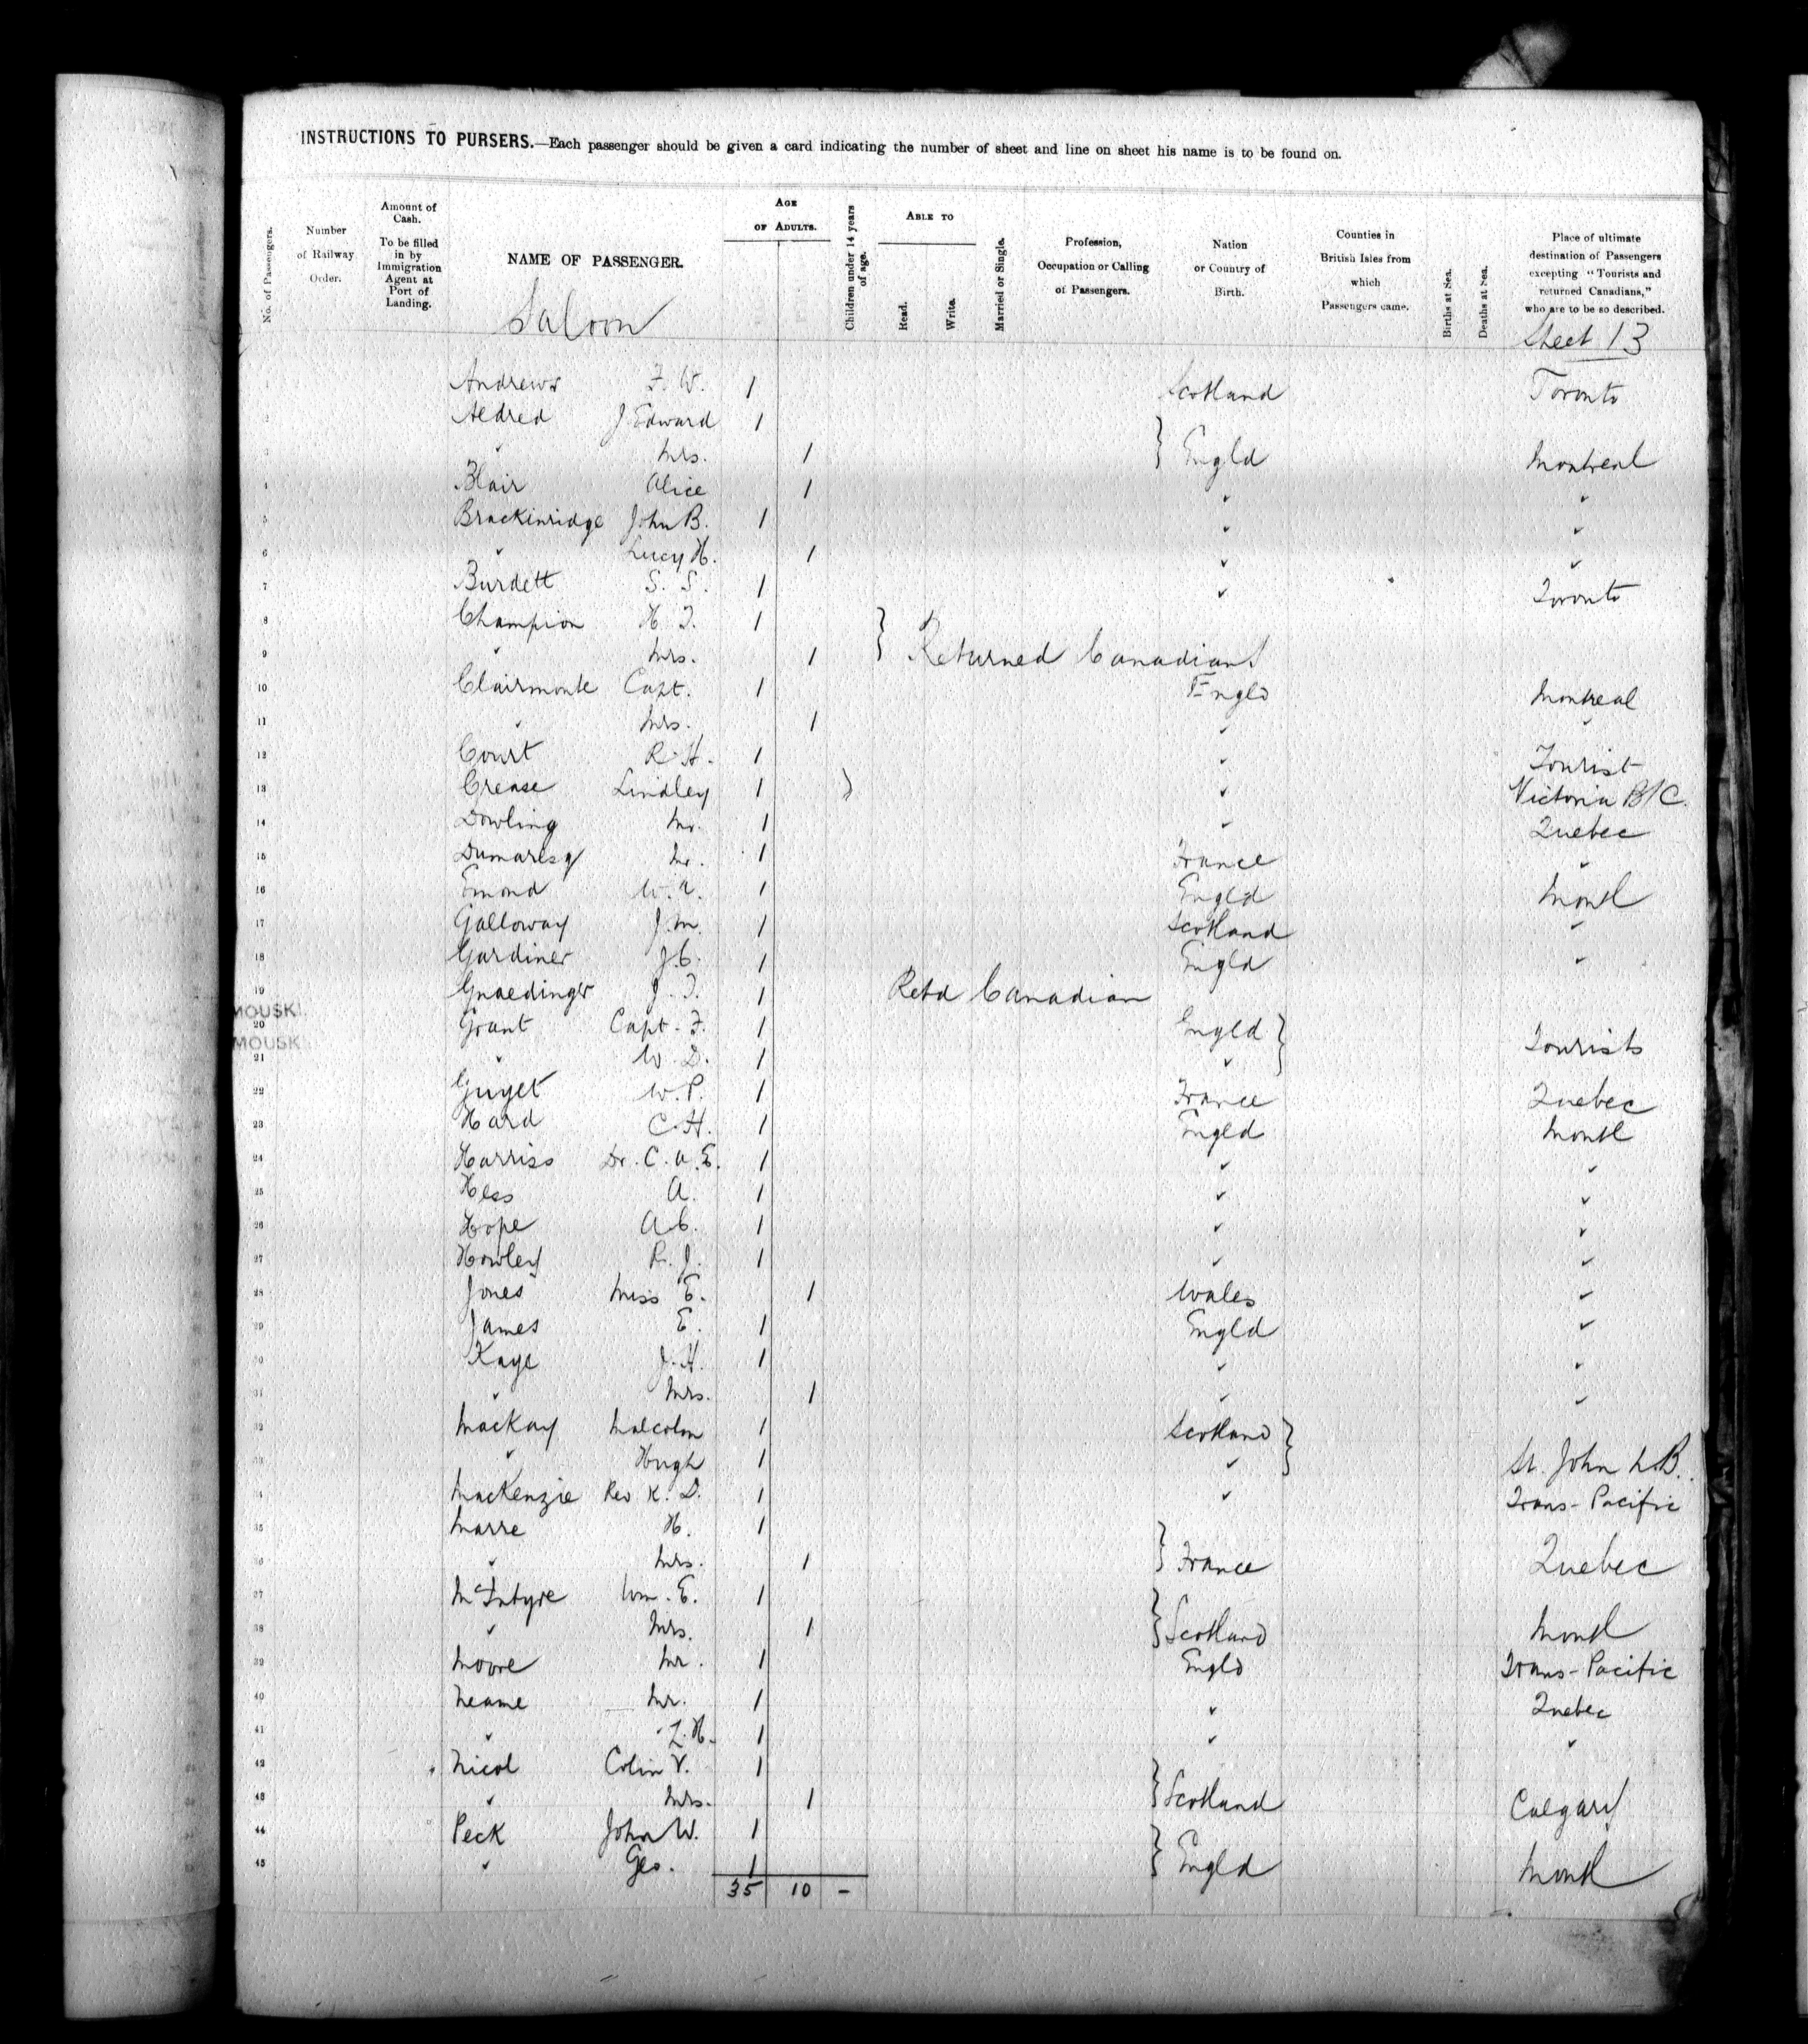 INSTRUCTIONS TO PURSERS.—Each passenger should be given a card indicating the number of sheet and line on sheet his name is to be found on.
No. of Passengers. Number of Railway Order. Amount of Cash. To be filled in by Immigration Agent at Port of Landing. NAME OF PASSENGER. AGE OF ADULTS. Children under 14 years of age. ABLE TO Read. Write. Married or Single. Profession, Occupation or Calling of Passengers. Nation or Country of Birth. Counties in British Isles from which Passengers came. Births at Sea. Deaths at Sea. Place of ultimate destination of Passengers excepting "Tourists and returned Canadians," who are to be so described.
Saloon Sheet 13
1 Andrews F. W. 1 Scotland Toronto
2 Aldred J Edward 1
3 " Mrs. 1 } Engld Montreal
4 Blair Alice 1 " "
5 Brackinridge John B. 1 " "
6 " Lucy H. 1 " "
7 Burdett S. S. 1 " Toronto
8 Champion H. T. 1
9 " Mrs. 1 } Returned Canadians
10 Clairmonte Capt. 1 Engld Montreal
11 " Mrs. 1 " "
12 Court R. H. 1 " Tourist
13 Crease Lindley 1 ) " Victoria B/C.
14 Dowling Mr. 1 " Quebec
15 Dumaresq Mr. 1 France "
16 Emond W. A. 1 Engld Montl
17 Galloway J. M. 1 Scotland "
18 Gardiner J. C. 1 Engld "
19 Gnaedinger J. T. 1 Retd Canadian
MOUSKI
20 Grant Capt. F. 1 Engld }
MOUSKI
21 " W. D. 1 " Tourists
22 Guyet W. P. 1 France Quebec
23 Hard C. H. 1 Engld Montl
24 Harriss Dr. C. A. E. 1 " "
25 Hess A. 1 " "
26 Hope A. C. 1 " "
27 Howley R. J. 1 " "
28 Jones Miss E. 1 Wales "
29 James E. 1 Engld "
30 Kaye J. H. 1 " "
31 " Mrs. 1 " "
32 MacKay Malcolm 1 Scotland }
33 " Hugh 1 " St. John N.B.
34 MacKenzie Rev K. D. 1 " Trans-Pacific
35 Marre H. 1
36 " Mrs. 1 } France Quebec
37 McIntyre Wm. E. 1
38 " Mrs. 1 } Scotland Montl
39 Moore Mr. 1 Engld Trans-Pacific
40 Neame Mr. 1 " Quebec
41 " L. H. 1 " "
42 Nicol Colin V. 1
43 " Mrs. 1 } Scotland Calgary
44 Peck John W. 1
45 " Geo. 1 } Engld Montl
35 10 -